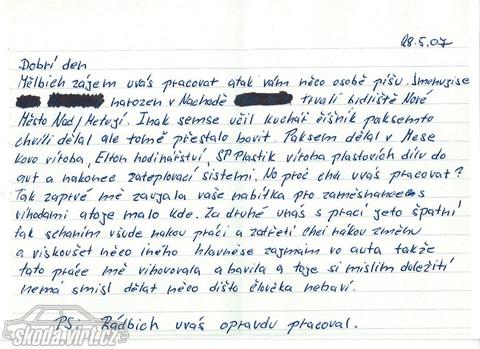 28.5.07
Dobrí den
Mělbich zájem uvás pracovat atak vám něco osobě píšu. Jmenujise
narozen v Nachodě trvalí bidliště Nové
Město Nad/Metují. Inak semse učil kuchář čišník paksemto
chvíli dělal ale tomě přestalo bavit. Paksem dělal v Mese
Kovo víroba, Elton hodinářství, SP Plastik víroba plastovích dílu do
aut a nakonec zateplovací sistemi. No proč chci uvás pracovat?
Tak zaprvé mě zaujala vaše nabítka pro zaměsnance s
víhodami atoje malo kde. Za druhé unás s prací jeto špatní
tak scháním všude nakou práci a zatřetí chci nákou změnu
a viskoušet něco iného hlavněse zajmám vo auta takže
tato práce mě vihovovala a bavila a toje si mislím doležití
nemá smisl dělat něco dišto člověka nebaví.
PS: Rádbich uvás opravdu pracoval.
skoda.virt.cz